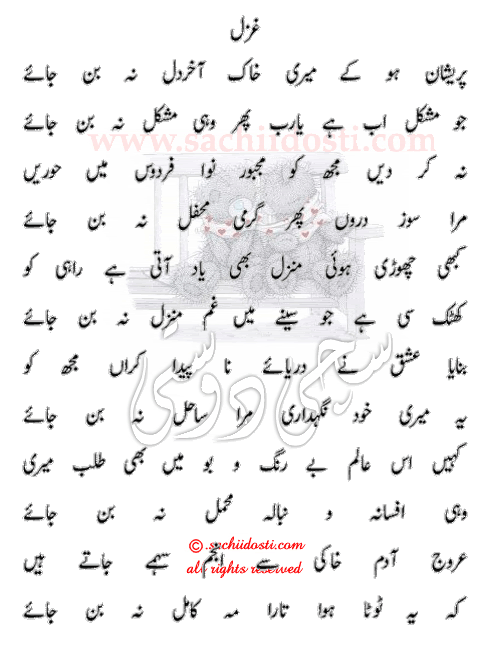 غزل
پریشاں ہو کے میری خاک آخر دل نہ بن جائے
جو مشکل اب ہے یارب پھر وہی مشکل نہ بن جائے
www.sachiidosti.com
نہ کر دیں مجھ کو مجبور نوا فردوس میں حوریں
مرا سوز دروں پھر گرمی محفل نہ بن جائے
کبھی چھوڑی ہوئی منزل بھی یاد آتی ہے راہی کو
کھٹک سی ہے جو سینے میں غم منزل نہ بن جائے
سچی دوستی
بنایا عشق نے دریائے نا پیدا کراں مجھ کو
یہ میری خود نگہداری مرا ساحل نہ بن جائے
کہیں اس عالم بے رنگ و بو میں بھی طلب میری
وہی افسانہ و نبالہ محمل نہ بن جائے
© sachiidosti.com
عروج آدم خاکی سے انجم سہمے جاتے ہیں
all rights reserved
کہ یہ ٹوٹا ہوا تارا مہ کامل نہ بن جائے